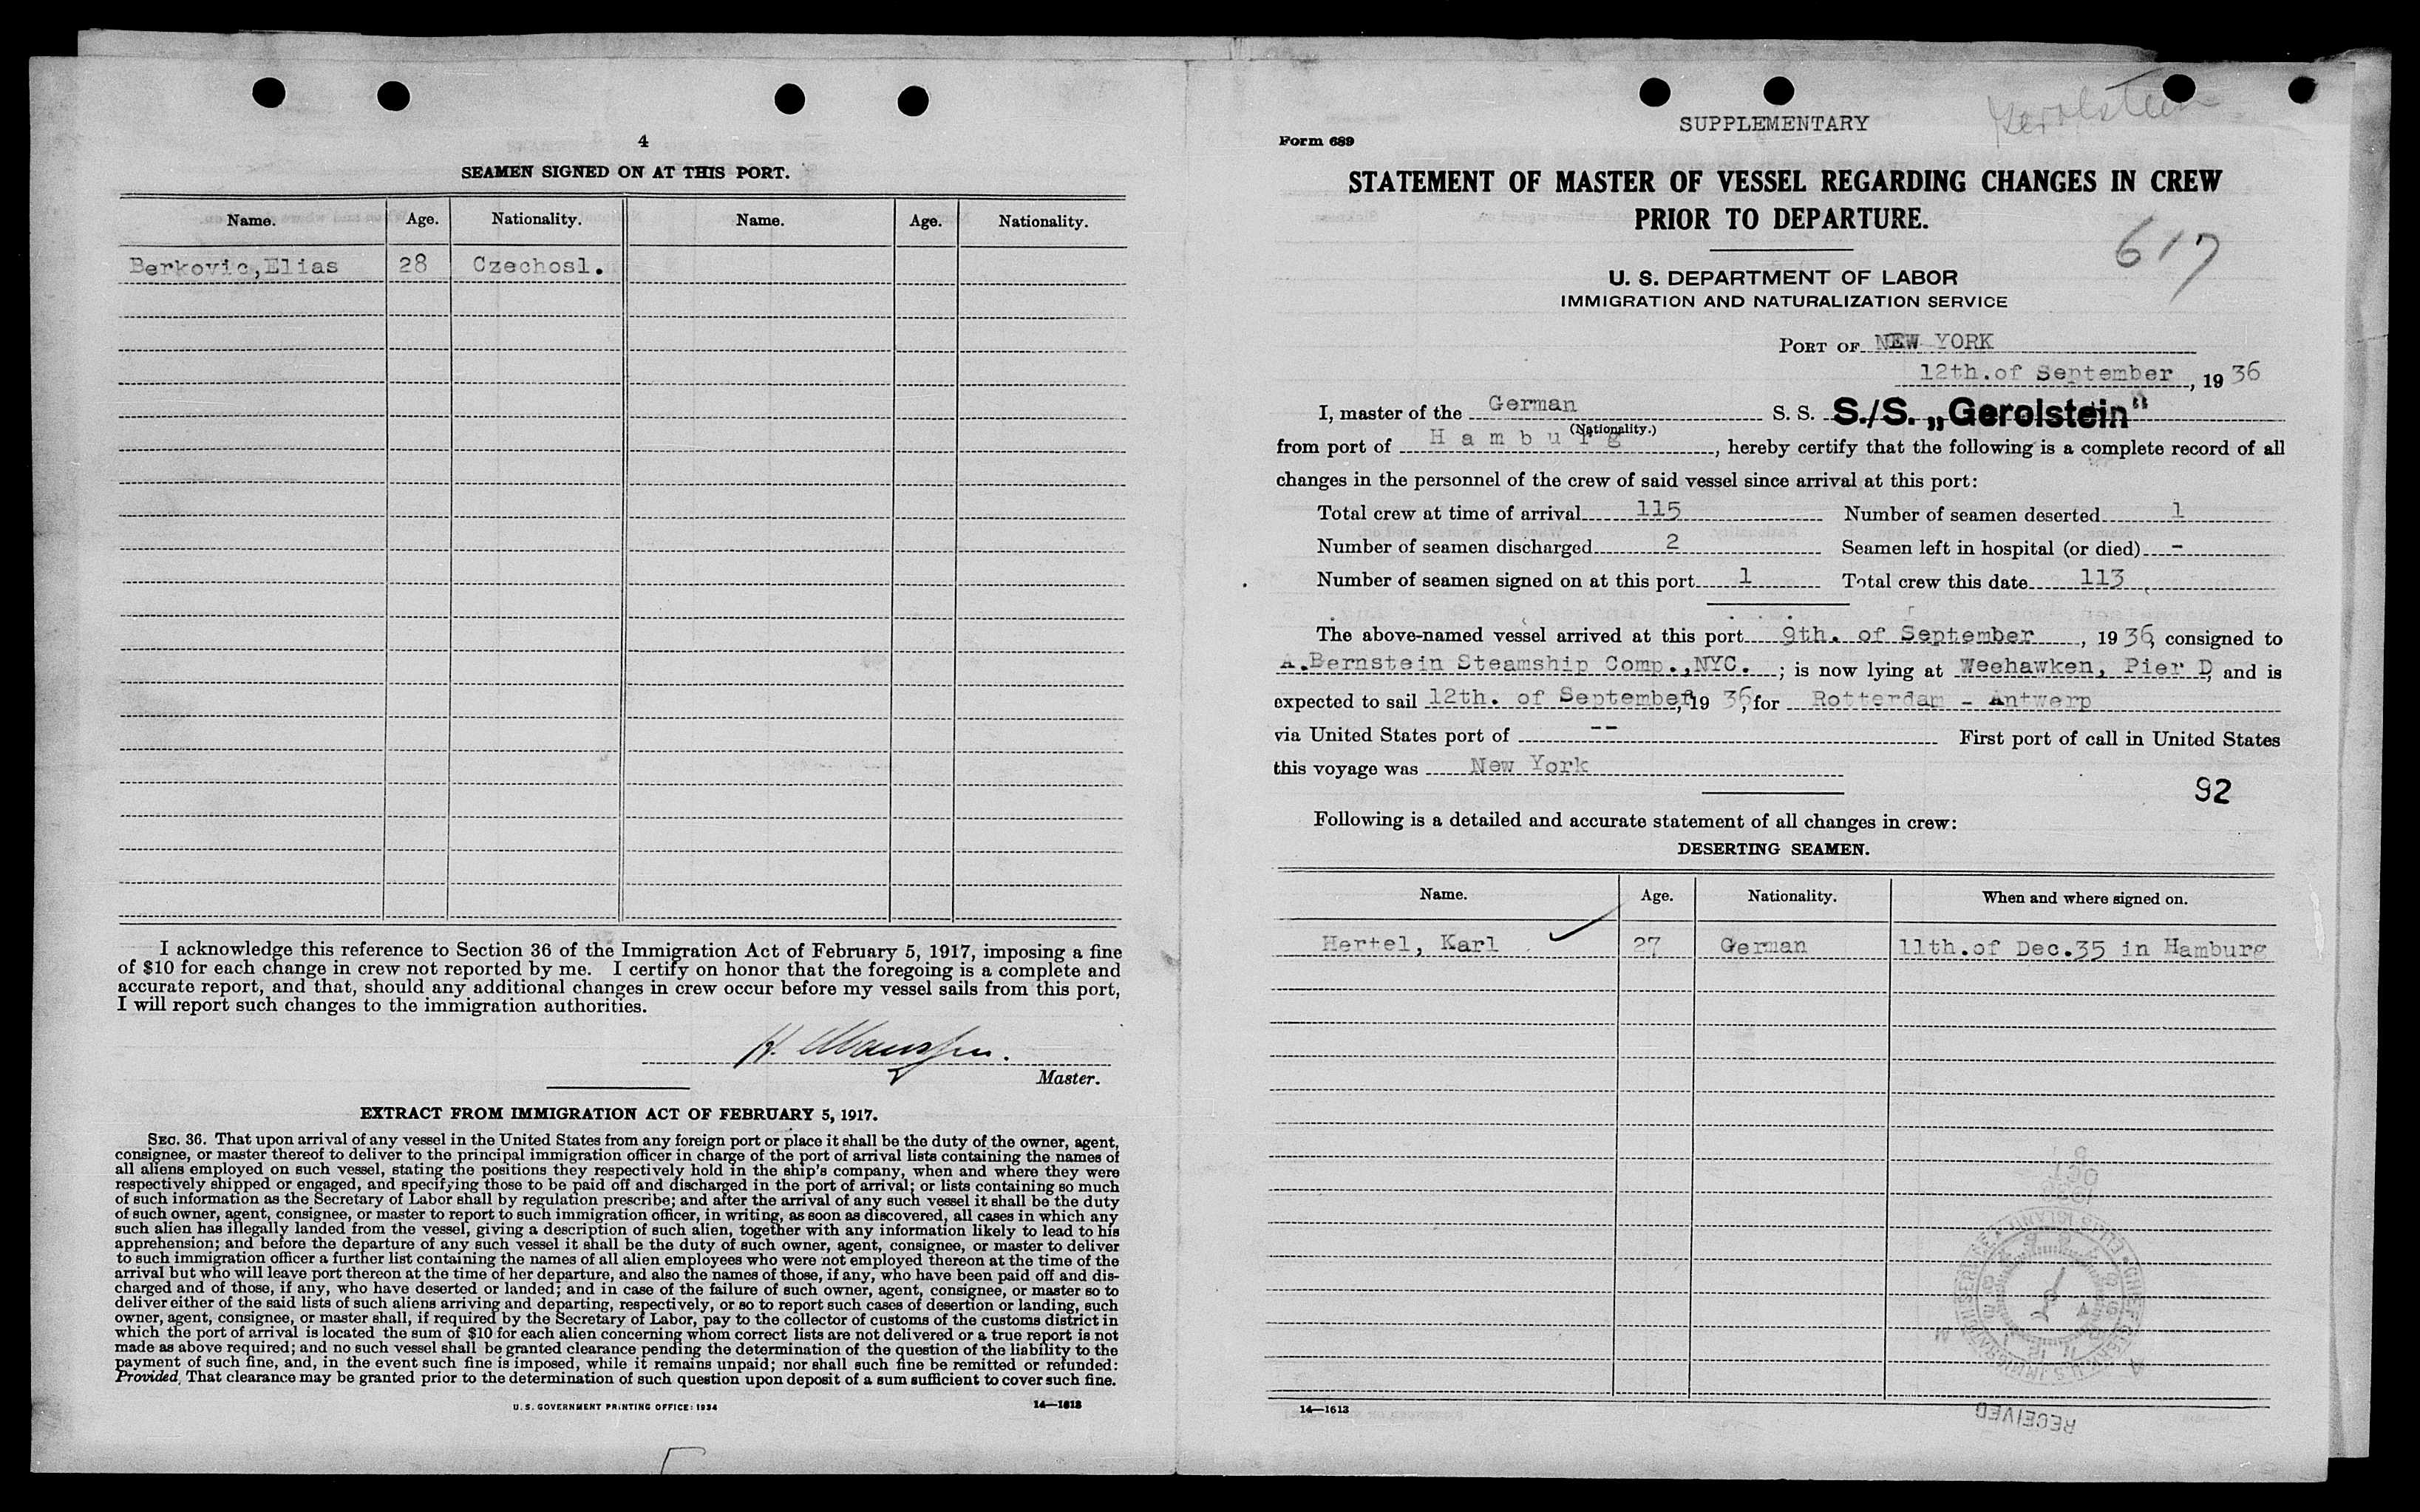 4
SEAMEN SIGNED ON AT THIS PORT.
Name. Age. Nationality. Name. Age. Nationality.
Berkovic,Elias 28 Czechosl.
I acknowledge this reference to Section 36 of the Immigration Act of February 5, 1917, imposing a fine
of $10 for each change in crew not reported by me. I certify on honor that the foregoing is a complete and
accurate report, and that, should any additional changes in crew occur before my vessel sails from this port,
I will report such changes to the immigration authorities.
H.
Master.
EXTRACT FROM IMMIGRATION ACT OF FEBRUARY 5, 1917.
SEC. 36. That upon arrival of any vessel in the United States from any foreign port or place it shall be the duty of the owner, agent,
consignee, or master thereof to deliver to the principal immigration officer in charge of the port of arrival lists containing the names of
all aliens employed on such vessel, stating the positions they respectively hold in the ship's company, when and where they were
respectively shipped or engaged, and specifying those to be paid off and discharged in the port of arrival; or lists containing so much
of such information as the Secretary of Labor shall by regulation prescribe; and after the arrival of any such vessel it shall be the duty
of such owner, agent, consignee, or master to report to such immigration officer, in writing, as soon as discovered, all cases in which any
such alien has illegally landed from the vessel, giving a description of such alien, together with any information likely to lead to his
apprehension; and before the departure of any such vessel it shall be the duty of such owner, agent, consignee, or master to deliver
to such immigration officer a further list containing the names of all alien employees who were not employed thereon at the time of the
arrival but who will leave port thereon at the time of her departure, and also the names of those, if any, who have been paid off and dis-
charged and of those, if any, who have deserted or landed; and in case of the failure of such owner, agent, consignee, or master so to
deliver either of the said lists of such aliens arriving and departing, respectively, or so to report such cases of desertion or landing, such
owner, agent, consignee, or master shall, if required by the Secretary of Labor, pay to the collector of customs of the customs district in
which the port of arrival is located the sum of $10 for each alien concerning whom correct lists are not delivered or a true report is not
made as above required; and no such vessel shall be granted clearance pending the determination of the question of the liability to the
payment of such fine, and, in the event such fine is imposed, while it remains unpaid; nor shall such fine be remitted or refunded:
Provided, That clearance may be granted prior to the determination of such question upon deposit of a sum sufficient to cover such fine.
U. S. GOVERNMENT PRINTING OFFICE: 1934 14—1613
Gerolstein
SUPPLEMENTARY
Form 689
STATEMENT OF MASTER OF VESSEL REGARDING CHANGES IN CREW
PRIOR TO DEPARTURE.
617
U. S. DEPARTMENT OF LABOR
IMMIGRATION AND NATURALIZATION SERVICE
PORT OF NEW YORK
12th.of September, 1936
I, master of the German S. S. S./S. „Gerolstein"
(Nationality.)
from port of Hamburg, hereby certify that the following is a complete record of all
changes in the personnel of the crew of said vessel since arrival at this port:
Total crew at time of arrival 115 Number of seamen deserted 1
Number of seamen discharged 2 Seamen left in hospital (or died) -
Number of seamen signed on at this port 1 Total crew this date 113
The above-named vessel arrived at this port 9th. of September, 1936, consigned to
A.Bernstein Steamship Comp.,NYC. ; is now lying at Weehawken, Pier D, and is
expected to sail 12th. of September, 1936, for Rotterdam - Antwerp
via United States port of -- First port of call in United States
this voyage was New York
92
Following is a detailed and accurate statement of all changes in crew:
DESERTING SEAMEN.
Name. Age. Nationality. When and where signed on.
Hertel, Karl 27 German 11th.of Dec.35 in Hamburg
14—1613
RECEIVED